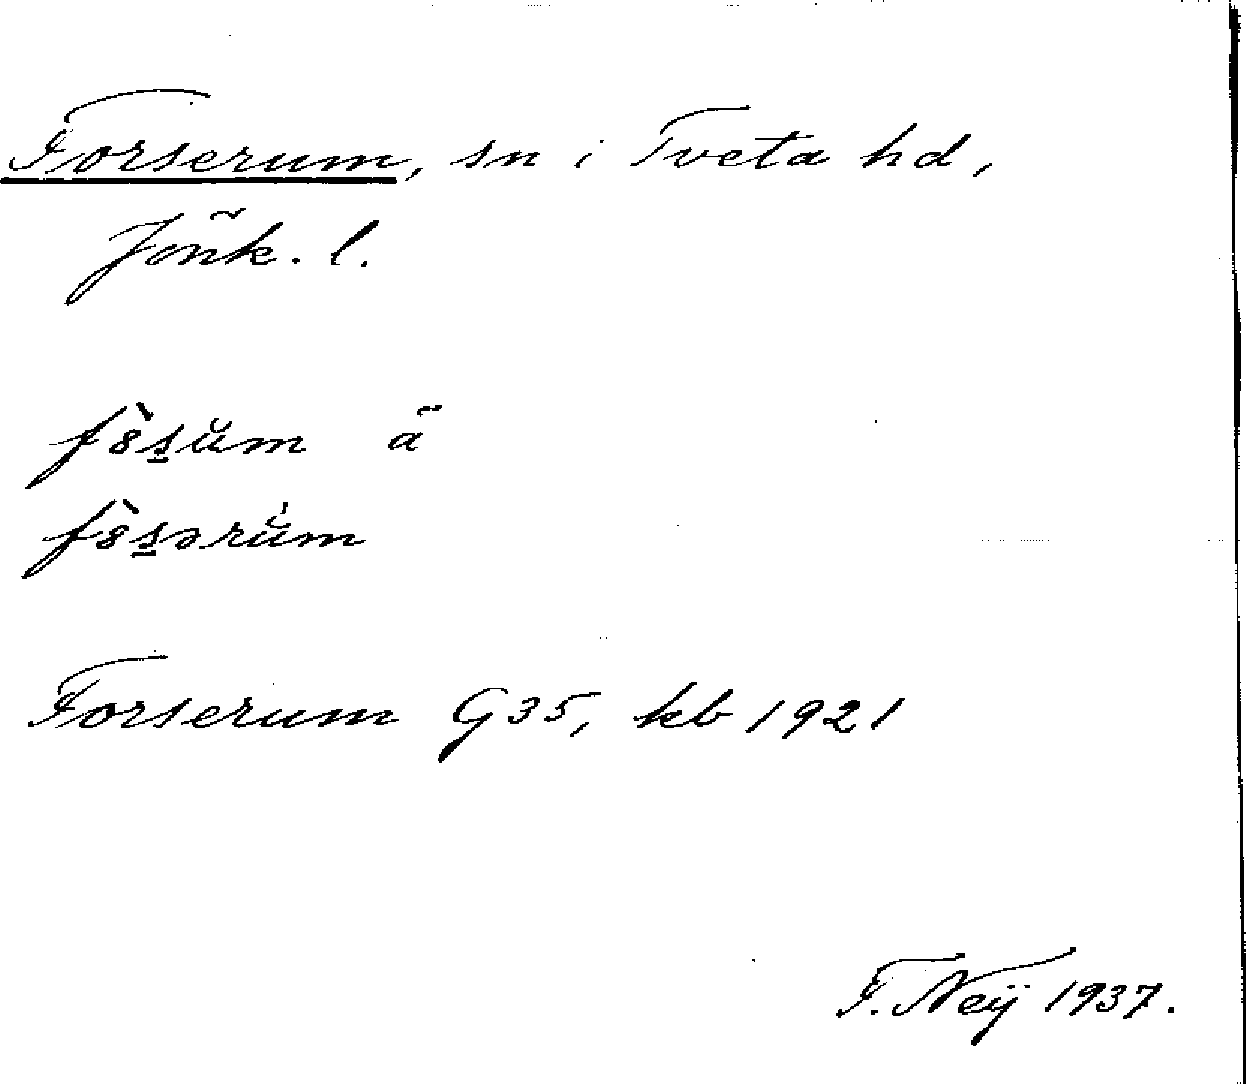 Forserum, sn i Tveta hd,
Jönk. l.
fòșŭm ä
fòșərŭ̀m
Forserum G35, kb 1921
F. Neÿ 1937.